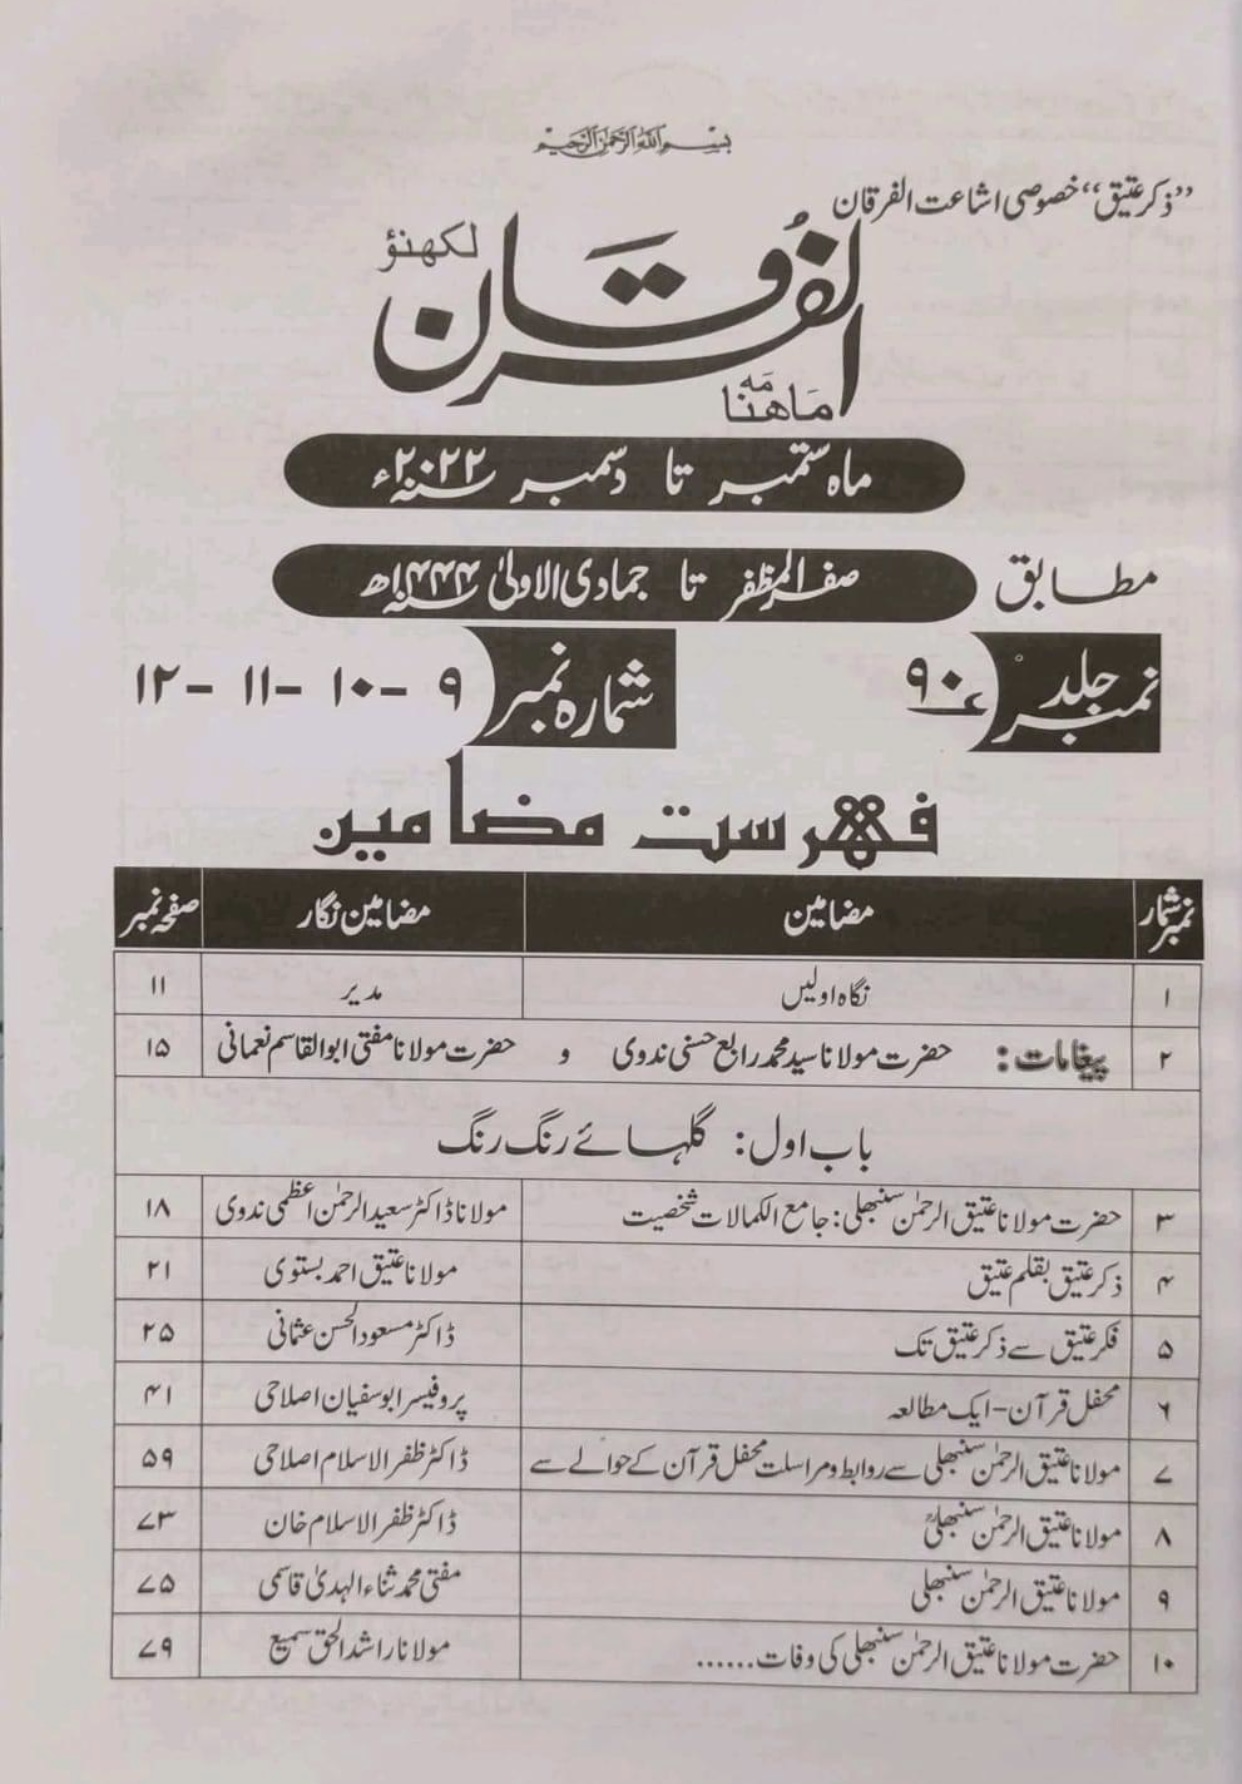 بسم الله الرحمن الرحيم
”ذکر عتیق“ خصوصی اشاعت الفرقان
لکھنؤ
الفرقان
ماہنامہ
ماہ ستمبر تا دسمبر سنہ ۲۰۲۲ء
مطابق صفر المظفر تا جمادی الاولیٰ سنہ ۱۴۴۴ھ
جلد نمبر ۹۰ شمارہ نمبر ۹ -۱۰ -۱۱ -۱۲
فہرست مضامین
نمبر شمار مضامین مضامین نگار صفحہ نمبر
۱ نگاہ اولیں مدیر ۱۱
۲ پیغامات: حضرت مولانا سید محمد رابع حسنی ندوی و حضرت مولانا مفتی ابوالقاسم نعمانی ۱۵
باب اول: گلہائے رنگ رنگ
۳ حضرت مولانا عتیق الرحمٰن سنبھلی: جامع الکمالات شخصیت مولانا ڈاکٹر سعید الرحمٰن اعظمی ندوی ۱۸
۴ ذکر عتیق بقلم عتیق مولانا عتیق احمد بستوی ۲۱
۵ فکر عتیق سے ذکر عتیق تک ڈاکٹر مسعود الحسن عثمانی ۲۵
۶ محفل قرآن - ایک مطالعہ پروفیسر ابوسفیان اصلاحی ۴۱
۷ مولانا عتیق الرحمٰن سنبھلی سے روابط و مراسلت محفل قرآن کے حوالے سے ڈاکٹر ظفر الاسلام اصلاحی ۵۹
۸ مولانا عتیق الرحمٰن سنبھلیؒ ڈاکٹر ظفر الاسلام خان ۷۳
۹ مولانا عتیق الرحمٰن سنبھلی مفتی محمد ثناء الہدیٰ قاسمی ۷۵
۱۰ حضرت مولانا عتیق الرحمٰن سنبھلی کی وفات...... مولانا راشد الحق سمیع ۷۹